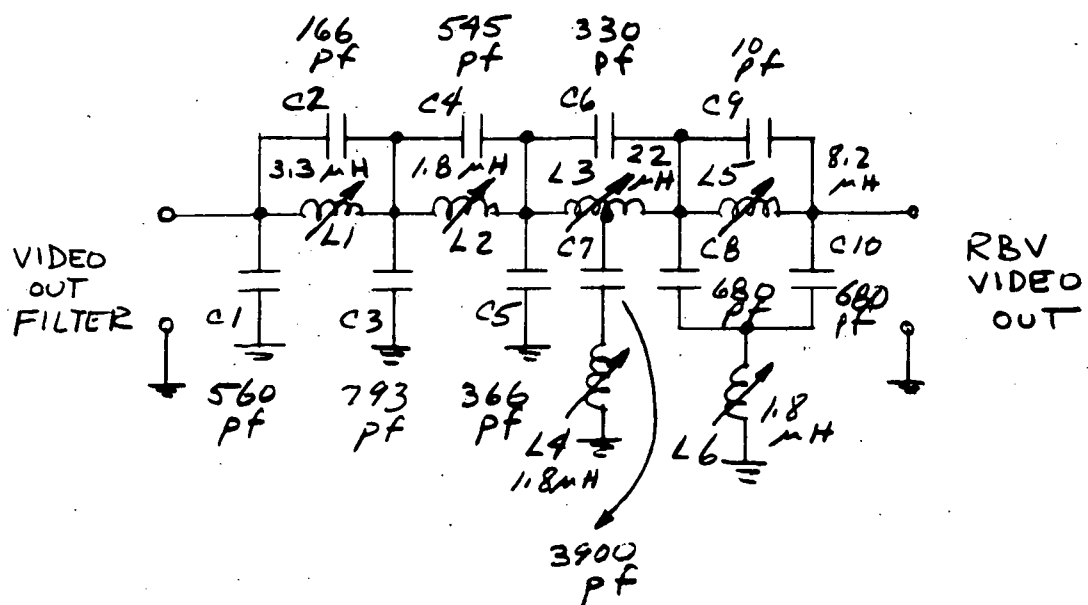 166
pf
545
pf
330
pf
10
pf
C2
C4
C6
C9
3.3 μH
1.8 μH
L3
22
μH
L5
8.2
μH
L1
L2
C7
C8
C10
VIDEO
OUT
FILTER
RBV
VIDEO
OUT
C1
C3
C5
680
pf
680
pf
560
pf
793
pf
366
pf
L4
1.8μH
L6
1.8
μH
3900
pf